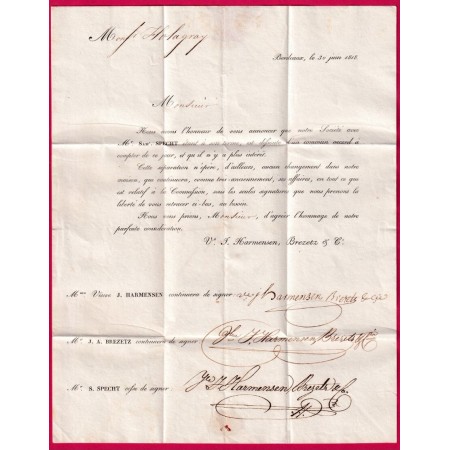 Monsr Holagray
Bordeaux, le 30 juin 1818.
Monsieur
Nous avons l'honneur de vous annoncer que notre Société avec
Mr. Sam. SPECHT étant à son terme, est dissoute d'un commun accord à
compter de ce jour, et qu'il n'y a plus intérêt.
Cette séparation n'opère, d'ailleurs, aucun changement dans notre
maison, qui continuera, comme très-anciennement, ses affaires, en tout ce qui
est relatif à la Commission, sous les seules signatures que nous prenons la
liberté de vous retracer ci-bas, au besoin.
Nous vous prions, Monsieur, d'agréer l'hommage de notre
parfaite considération.
Ve. J. Harmensen, Brezetz & Ce.
Mme. Veuve J. HARMENSEN continuera de signer Harmensen Brezetz
Mr. J. A. BREZETZ continuera de signer Ve. J. Harmensen Brezetz & Ce
Mr. S. SPECHT cesse de signer Ve. J. Harmensen Brezetz & Ce